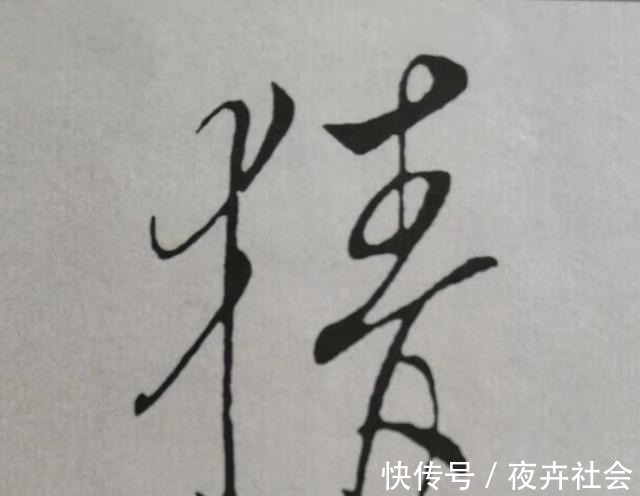 精
快传号 / 夜卉社会